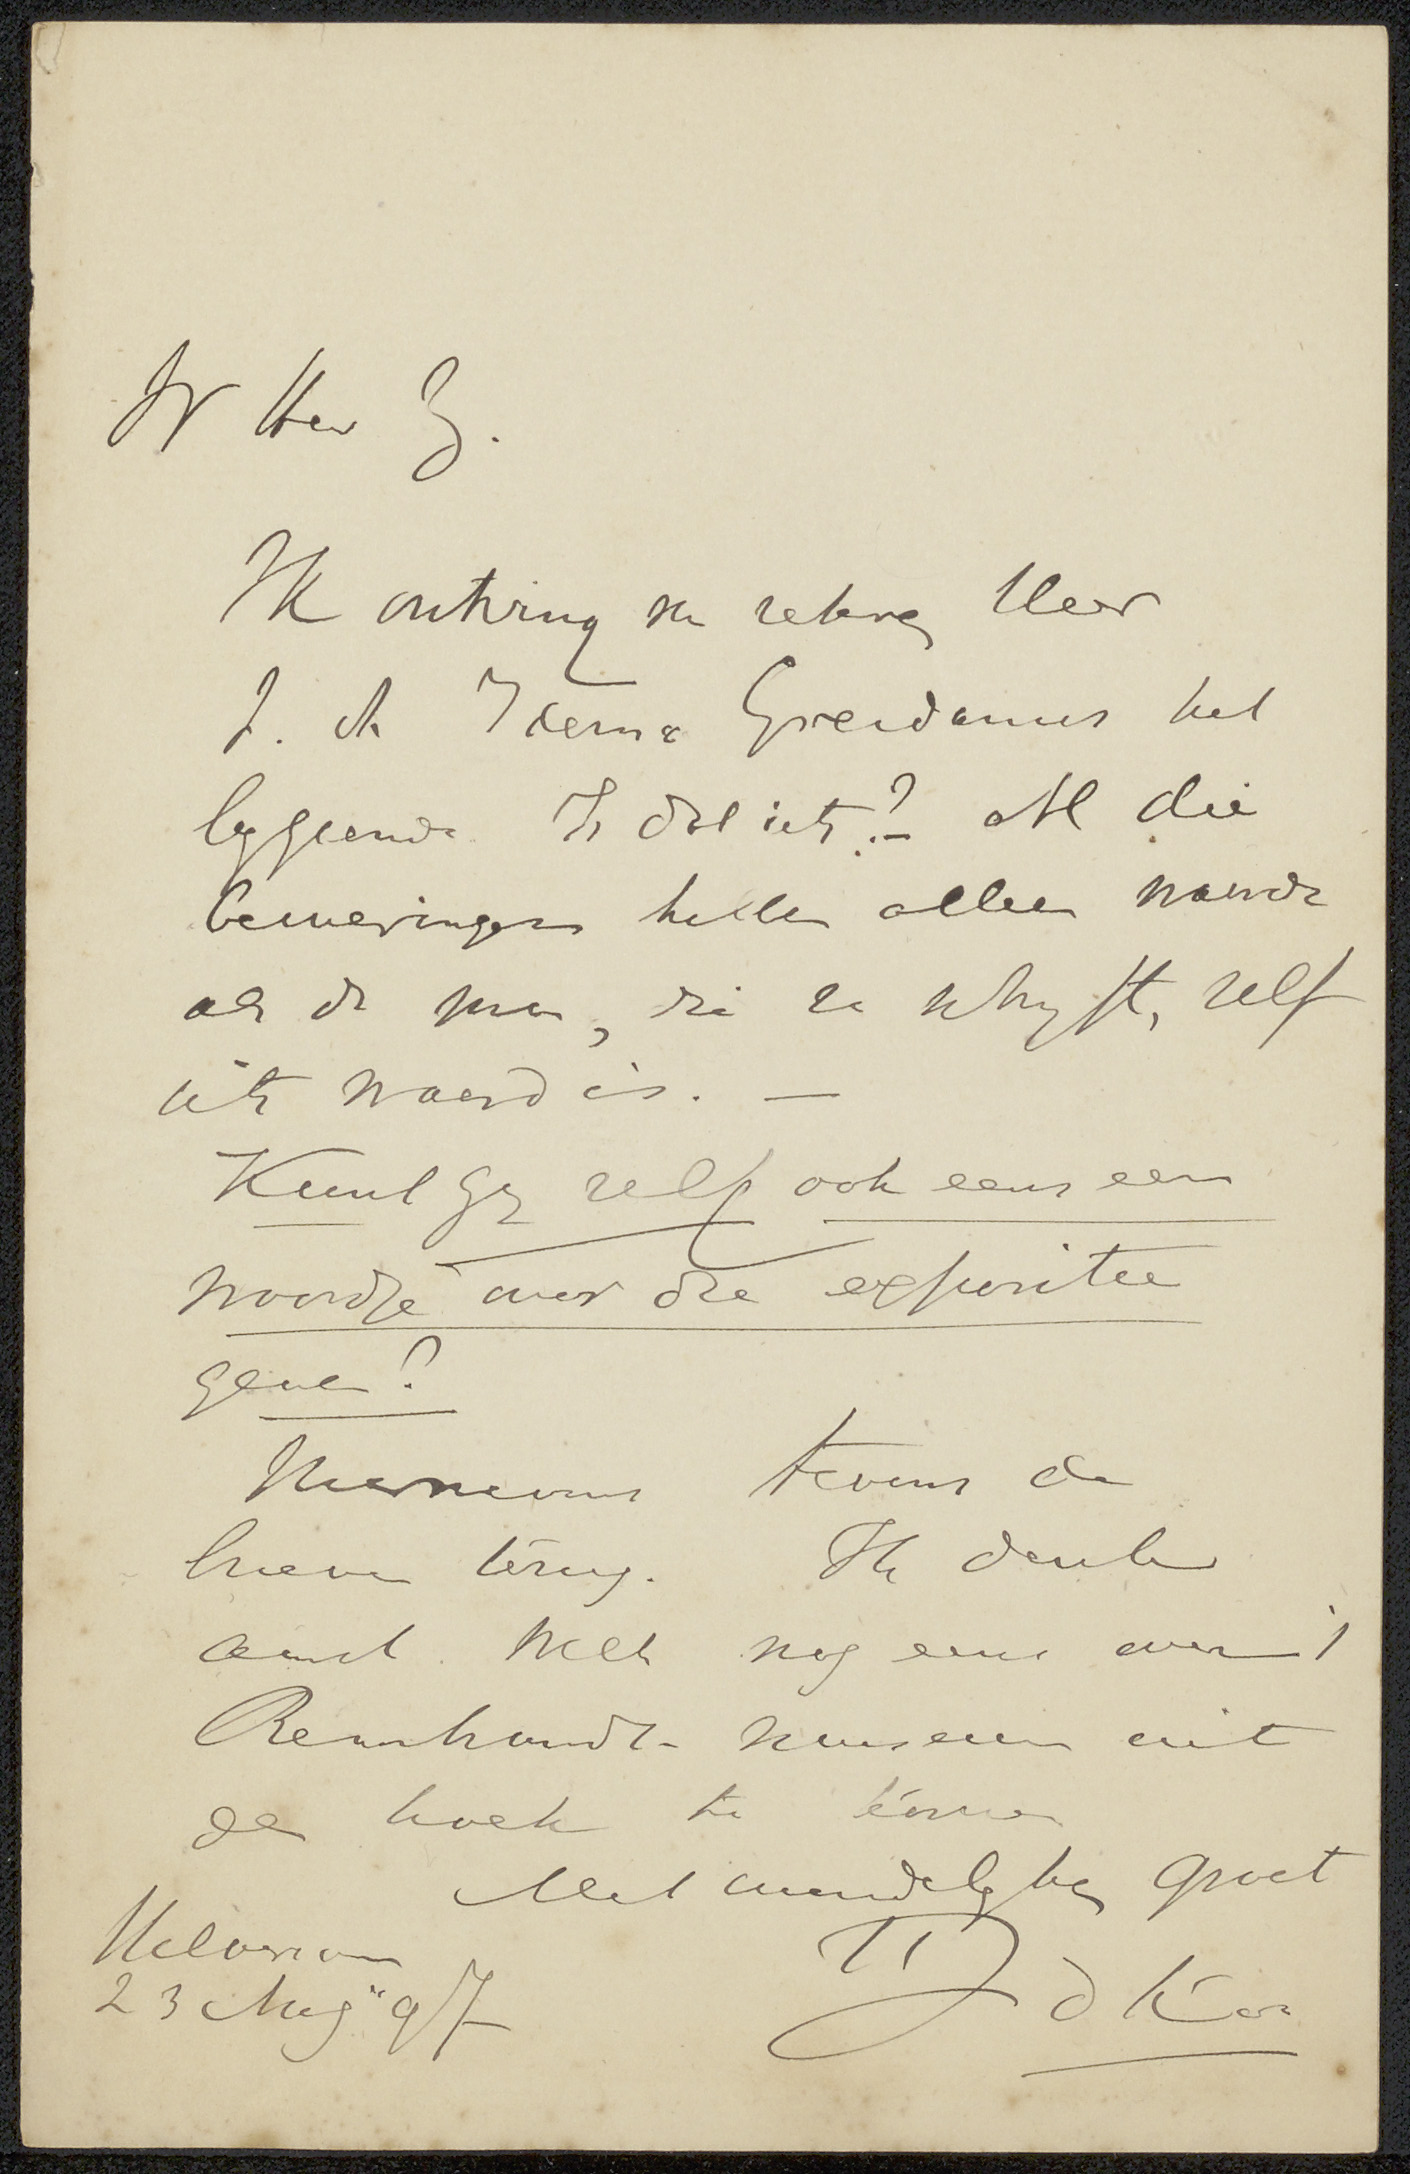 W Heer Z.
Ik ontving van zekeren Heer
J. A Tiema Greidanus het
bijgaande Is dat iets? – Al die
beweringen hebben alleen waarde
als de man, die ze schrijft, zelf
iets waard is. —
Kunt gij zelf ook eens een
woordje over die expositie
geven?
Hiernevens tevens de
brieven terug. Ik denk er
nog eens over 't
Rembrandt- museum uit
de hoek te komen
Met vriendelijken groet
Hilversum
23 Aug" 97